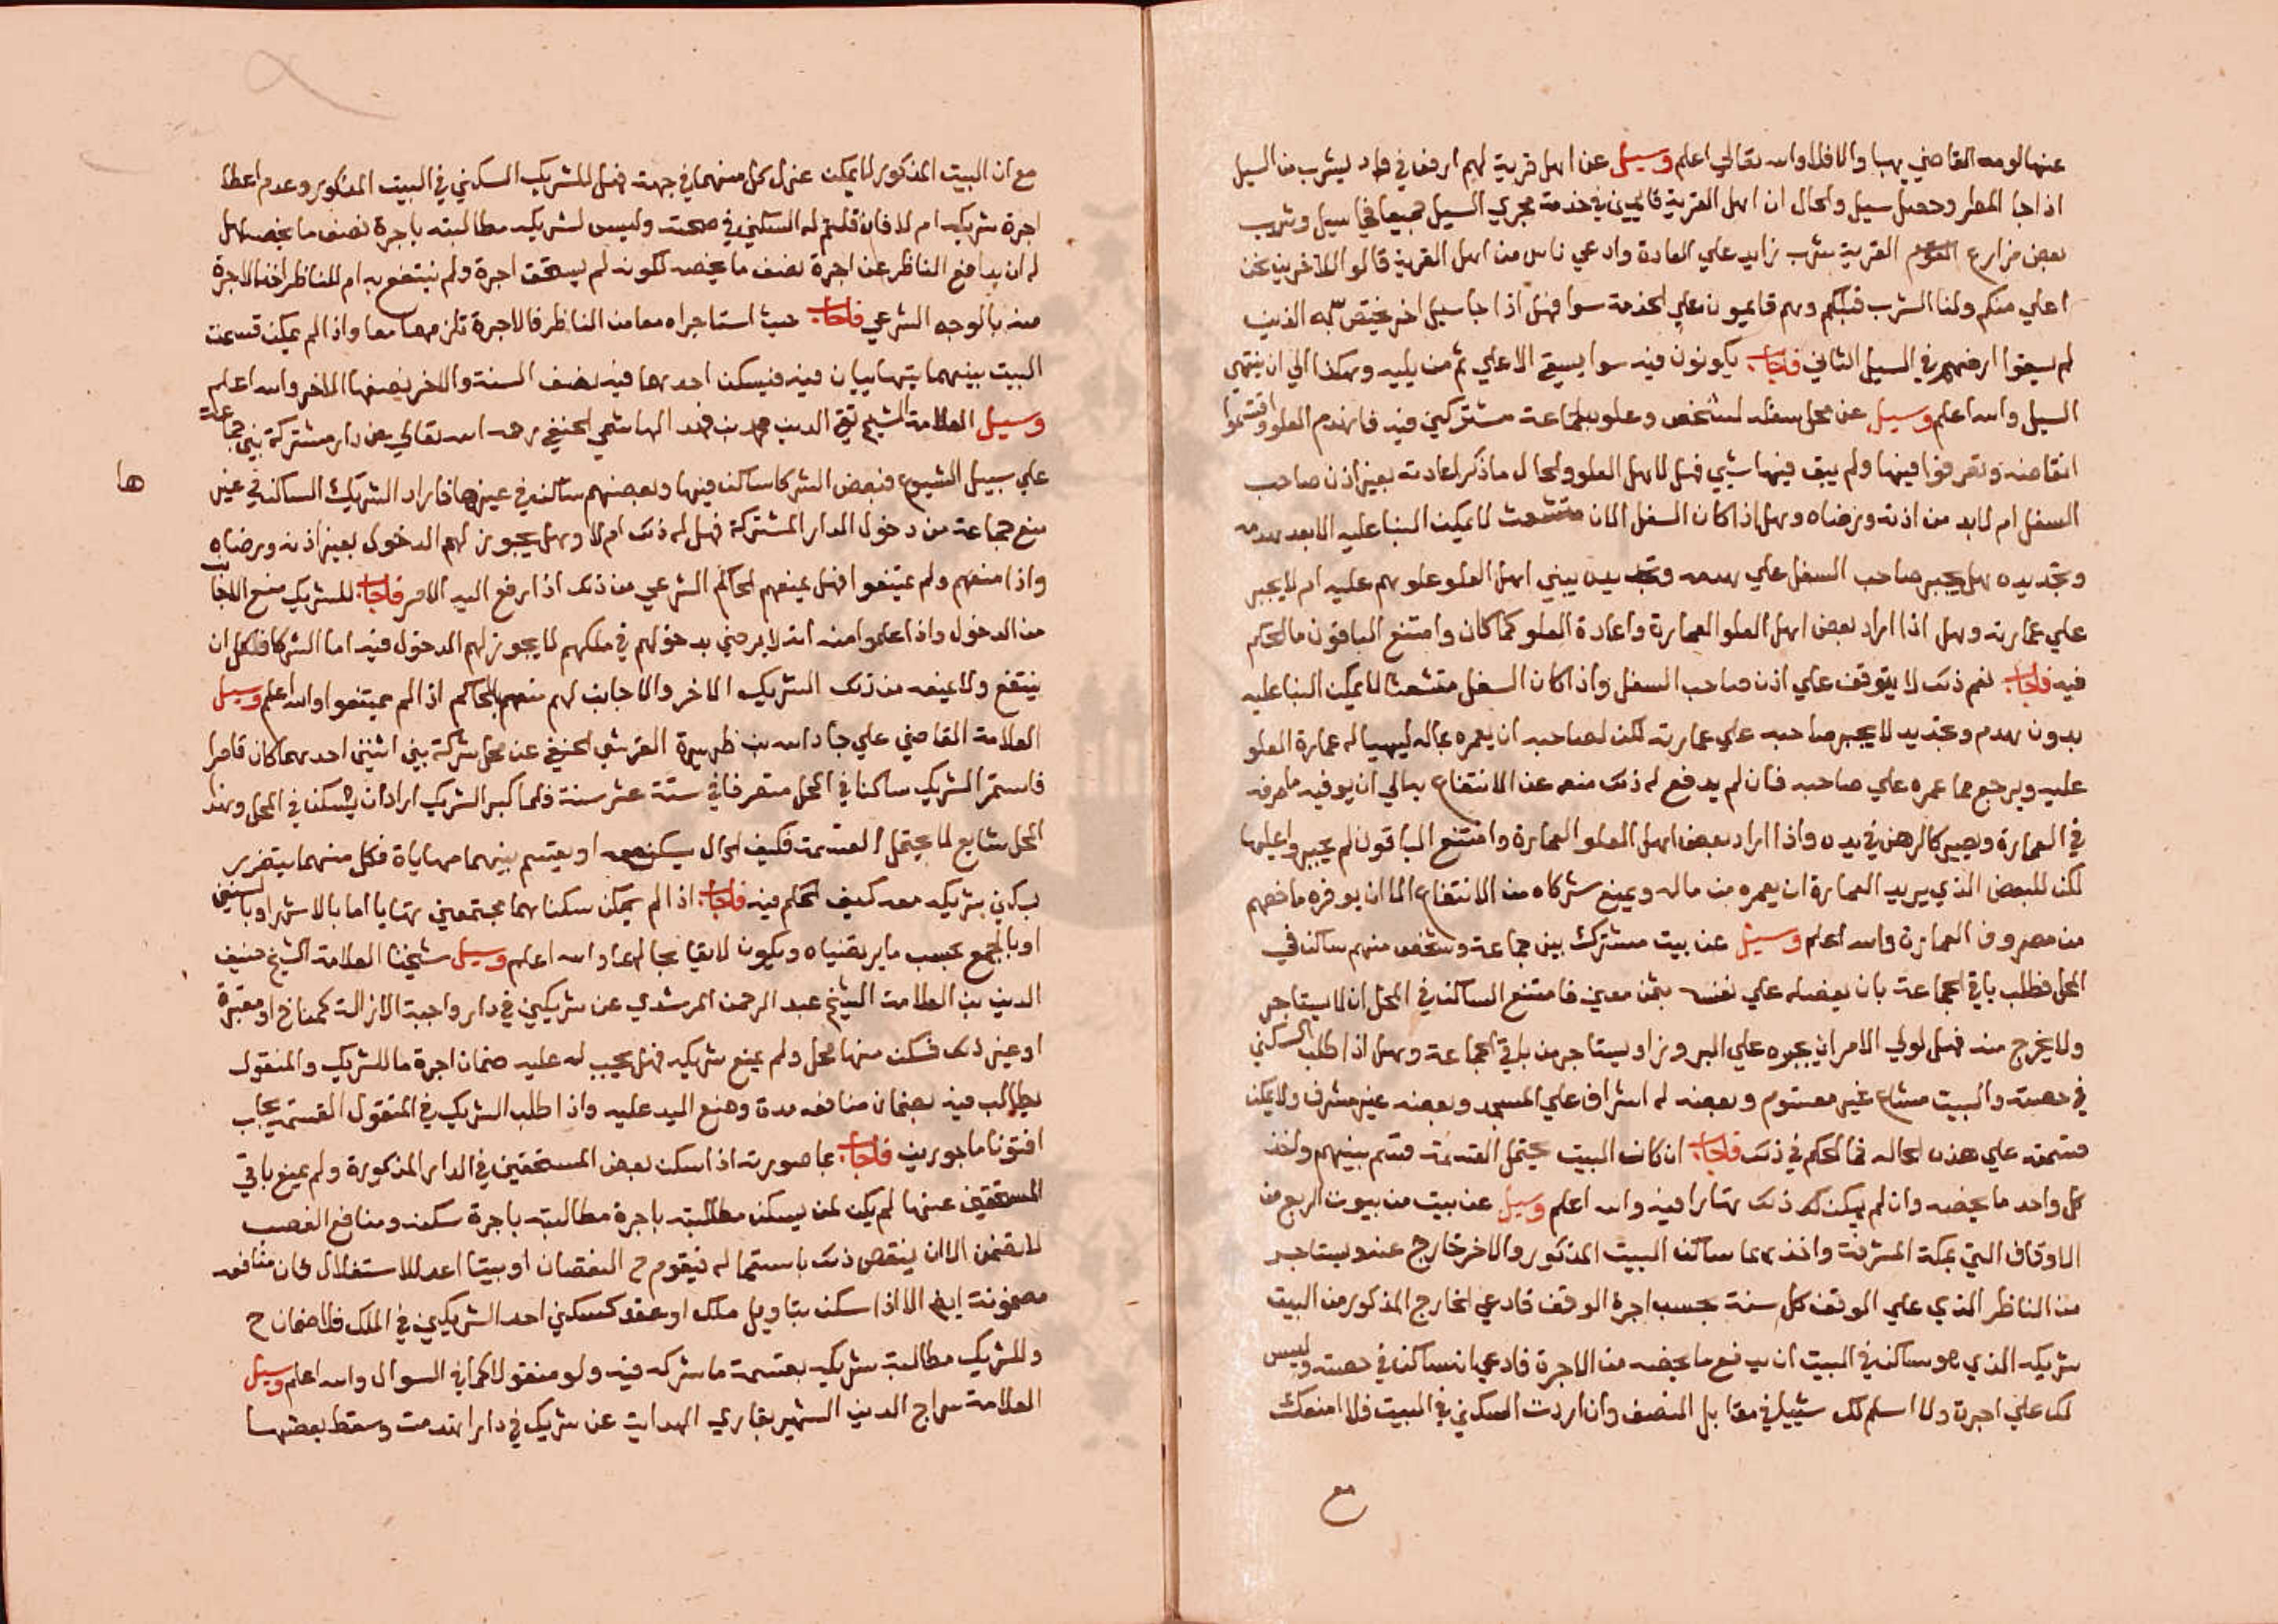 عنها لومه القاضي بها والا فلا والله تعالى اعلم وسيل عن اهل قرية لهم ارض في واد ليشرب من السيل
اذا جا المطر وحصل سيل والحال ان اهل القرية قايمون في خدمة مجري السيل جميعا فجا سيل وشرب
بعض مزارع القرية شرب زايد علي العادة وادعي ناس من اهل القرية قالوا للاخرين نحن
اعلي منكم ولنا الشرب قبلكم وهم قايمون علي الخدمة سوا فهل اذا جا سيل اخر يختص به الذين
لم يسقوا ارضهم في السيل الثاني فاجاب يكونون فيه سوا يسقي الاعلي ثم من يليه وهكذا الي ان ينتهي
السيل والله اعلم وسيل عن محل سفله لشخص وعلوه لجماعة مشتركين فيه فانهدم العلو واقتسموا
انقاضه وتصرفوا فيها ولم يبق فيها شي فهل لاهل العلو والحال ما ذكر اعادته بغير اذن صاحب
السفل ام لا بد من اذنه ورضاه وهل اذا كان السفل الان متشعث لا يمكن البنا عليه الا بعد هدمه
وتجديده هل يجبر صاحب السفل علي هدمه وتجديده يبني اهل العلو علوهم عليه ام لا يجبر
علي عمارته وهل اذا اراد بعض اهل العلو العمارة واعادة العلو كما كان وامتنع الباقون ما الحكم
فيه فاجاب نعم ذلك لا يتوقف علي اذن صاحب السفل واذا كان السفل متشعثا لا يمكن البنا عليه
بدون هدم وتجديد لا يجبر صاحبه علي عمارته لكن لصاحبه ان يعمره بماله ليهيا له عمارة العلو
عليه ويرجع بما عمره علي صاحبه فان لم يدفع له ذلك منعه عن الانتفاع به الي ان يوفيه ما صرفه
في العمارة ويصير كالرهن في يده واذا اراد بعض اهل العلو العمارة وامتنع الباقون لم يجبروا عليها
لكن للبعض الذي يريد العمارة ان يعمره من ماله ويمنع شركاه من الانتفاع الا ان يوفره ما خصهم
من مصروف العمارة والله اعلم وسيل عن بيت مشترك بين جماعة وشخص منهم ساكن في
المحل فطلب باقي الجماعة بان يفصله علي نفسه بثمن معين فامتنع الساكن في المحل ان لا يستاجر
ولا يخرج منه فهل لولي الامر ان يجبره علي البروز او يستاجر من باقي الجماعة وهل اذا طلب السكني
في حصته والبيت مشاع غير مقسوم وبعضه له اشراف علي المسجد وبعضه غير مشرف ولا يمكن
قسمته علي هذه الحاله فما الحكم في ذلك فاجاب ان كان البيت يحتمل القسمة قسم بينهم واخذ
كل واحد ما يخصه وان لم يمكن ذلك تهايوا فيه والله اعلم وسيل عن بيت من بيوت الربع من
الاوقاف التي بمكة المشرفة واخذهما ساكن البيت المذكور والاخر خارج عنه ويستاجر
من الناظر الذي علي الوقف كل سنة بحسب اجرة الوقف فادعي الخارج المذكور من البيت
شريكه الذي هو ساكن في البيت ان يدفع ما يخصه من الاجرة فادعي ان ساكن في حصته وليس
لك علي اجرة ولا اسلم لك شي في مقابل النصف وان اردت السكني في البيت فلا امنعك
مع
مع ان البيت المذكور لا يمكن عزل كل منهما في جهة فهل للشريك السكني في البيت المذكور وعدم اعطا
اجرة شريكه ام لا فان قلتم له السكني في حصته وليس لشريكه مطالبته باجرة نصف ما يخصه هل
له ان يدافع الناظر عن اجرة نصف ما يخصه لكونه لم يستحق اجرة ولم ينتفع به ام للناظر اخذ الاجرة
منه بالوجه الشرعي فاجاب حيث استاجراه معا من الناظر فالاجرة تلزمهما معا واذا لم يمكن قسمت
البيت بينهما يتهايان فيه فيسكن احدهما فيه نصف السنة والاخر نصفها الاخر والله اعلم
وسيل العلامة الشيخ تقي الدين محمد بن فهد الهاشمي الحنفي رحمه الله تعالي عن دار مشتركة بين جماعة
علي سبيل الشيوع فبعض الشركا ساكن فيها وبعضهم ساكن في غيرها فاراد الشريك الساكن في غير
ها
منع جماعة من دخول الدار المشتركة فهل له ذلك ام لا وهل يجوز لهم الدخول بغير اذنه ورضاه
واذا منعهم ولم يمتنعوا فهل يمنعهم الحاكم الشرعي من ذلك اذا رفع اليه الامر فاجاب للشريك منع الاجانب
من الدخول واذا علموا منه انه لا يرضي بدخولهم في ملكهم لا يجوز لهم الدخول فيه اما الشركا فلكل ان
ينتفع ولا يمنعه من ذلك الشريك الاخر والاجانب لهم منعهم بالحاكم اذا لم يمتنعوا والله اعلم وسيل
العلامة القاضي علي جاد الله بن ظهيرة القرشي الحنفي عن محل شركة بين اثنين احدهما كان قاصرا
فاستمر الشريك ساكنا في المحل متصرفا في ستة عشر سنة فلما كبر الشريك اراد ان يسكن في المحل وهذا
المحل شايع لا يحتمل القسمة فكيف الحال يسكن معه او يقتسم بينهما مهاياة فكل منهما يتضرر
بسكني شريكه معه كيف الحكم فيه فاجاب اذا لم يمكن سكناهما مجتمعين تهايا اما بالاشهر او بالسنين
او بالجمع بحسب ما يرتضياه ويكون لايقا بحالهما والله اعلم وسيل شيخنا العلامة الشيخ حنيف
الدين بن العلامة الشيخ عبد الرحمن المرشدي عن شريكين في دار واجبة الازالة كمناخ او مقبرة
او غير ذلك فسكن منها محل ولم يمنع شريكه فهل يجب له عليه ضمان اجرة ما للشريك والمنقول
يطالب فيه بضمان منافعه مدة وضع اليد عليه واذا طلب الشريك في المنقول القسمة يجاب
افتونا ماجورين فاجاب بما صورته اذا سكن بعض المستحقين في الدار المذكورة ولم يمنع باقي
المستحقين عنها لم يكن لمن يسكن مطالبته باجرة مطالبته باجرة سكنه ومنافع الغصب
لا تضمن الا ان ينقص ذلك باستعماله فيقوم ح النقصان او بيتا اعد للاستغلال فان منافعه
مضمونة ايض الا اذا سكن بتاويل ملك او عقد كسكني احد الشريكين في الملك فلا ضمان ح
وللشريك مطالبة شريكه بقسمة ما شركه فيه ولو منقولا كما في السوال والله اعلم وسيل
العلامة سراج الدين الشهير بقاري الهداية عن شريك في دار انهدمت وسقط بعضها